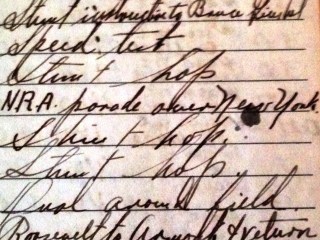 Stunt instruction to Bruce
Speed test
Stunt hop
N.R.A. parade over New York.
Stunt hop.
Stunt hop.
Dual around field.
Roosevelt to Armonk & return